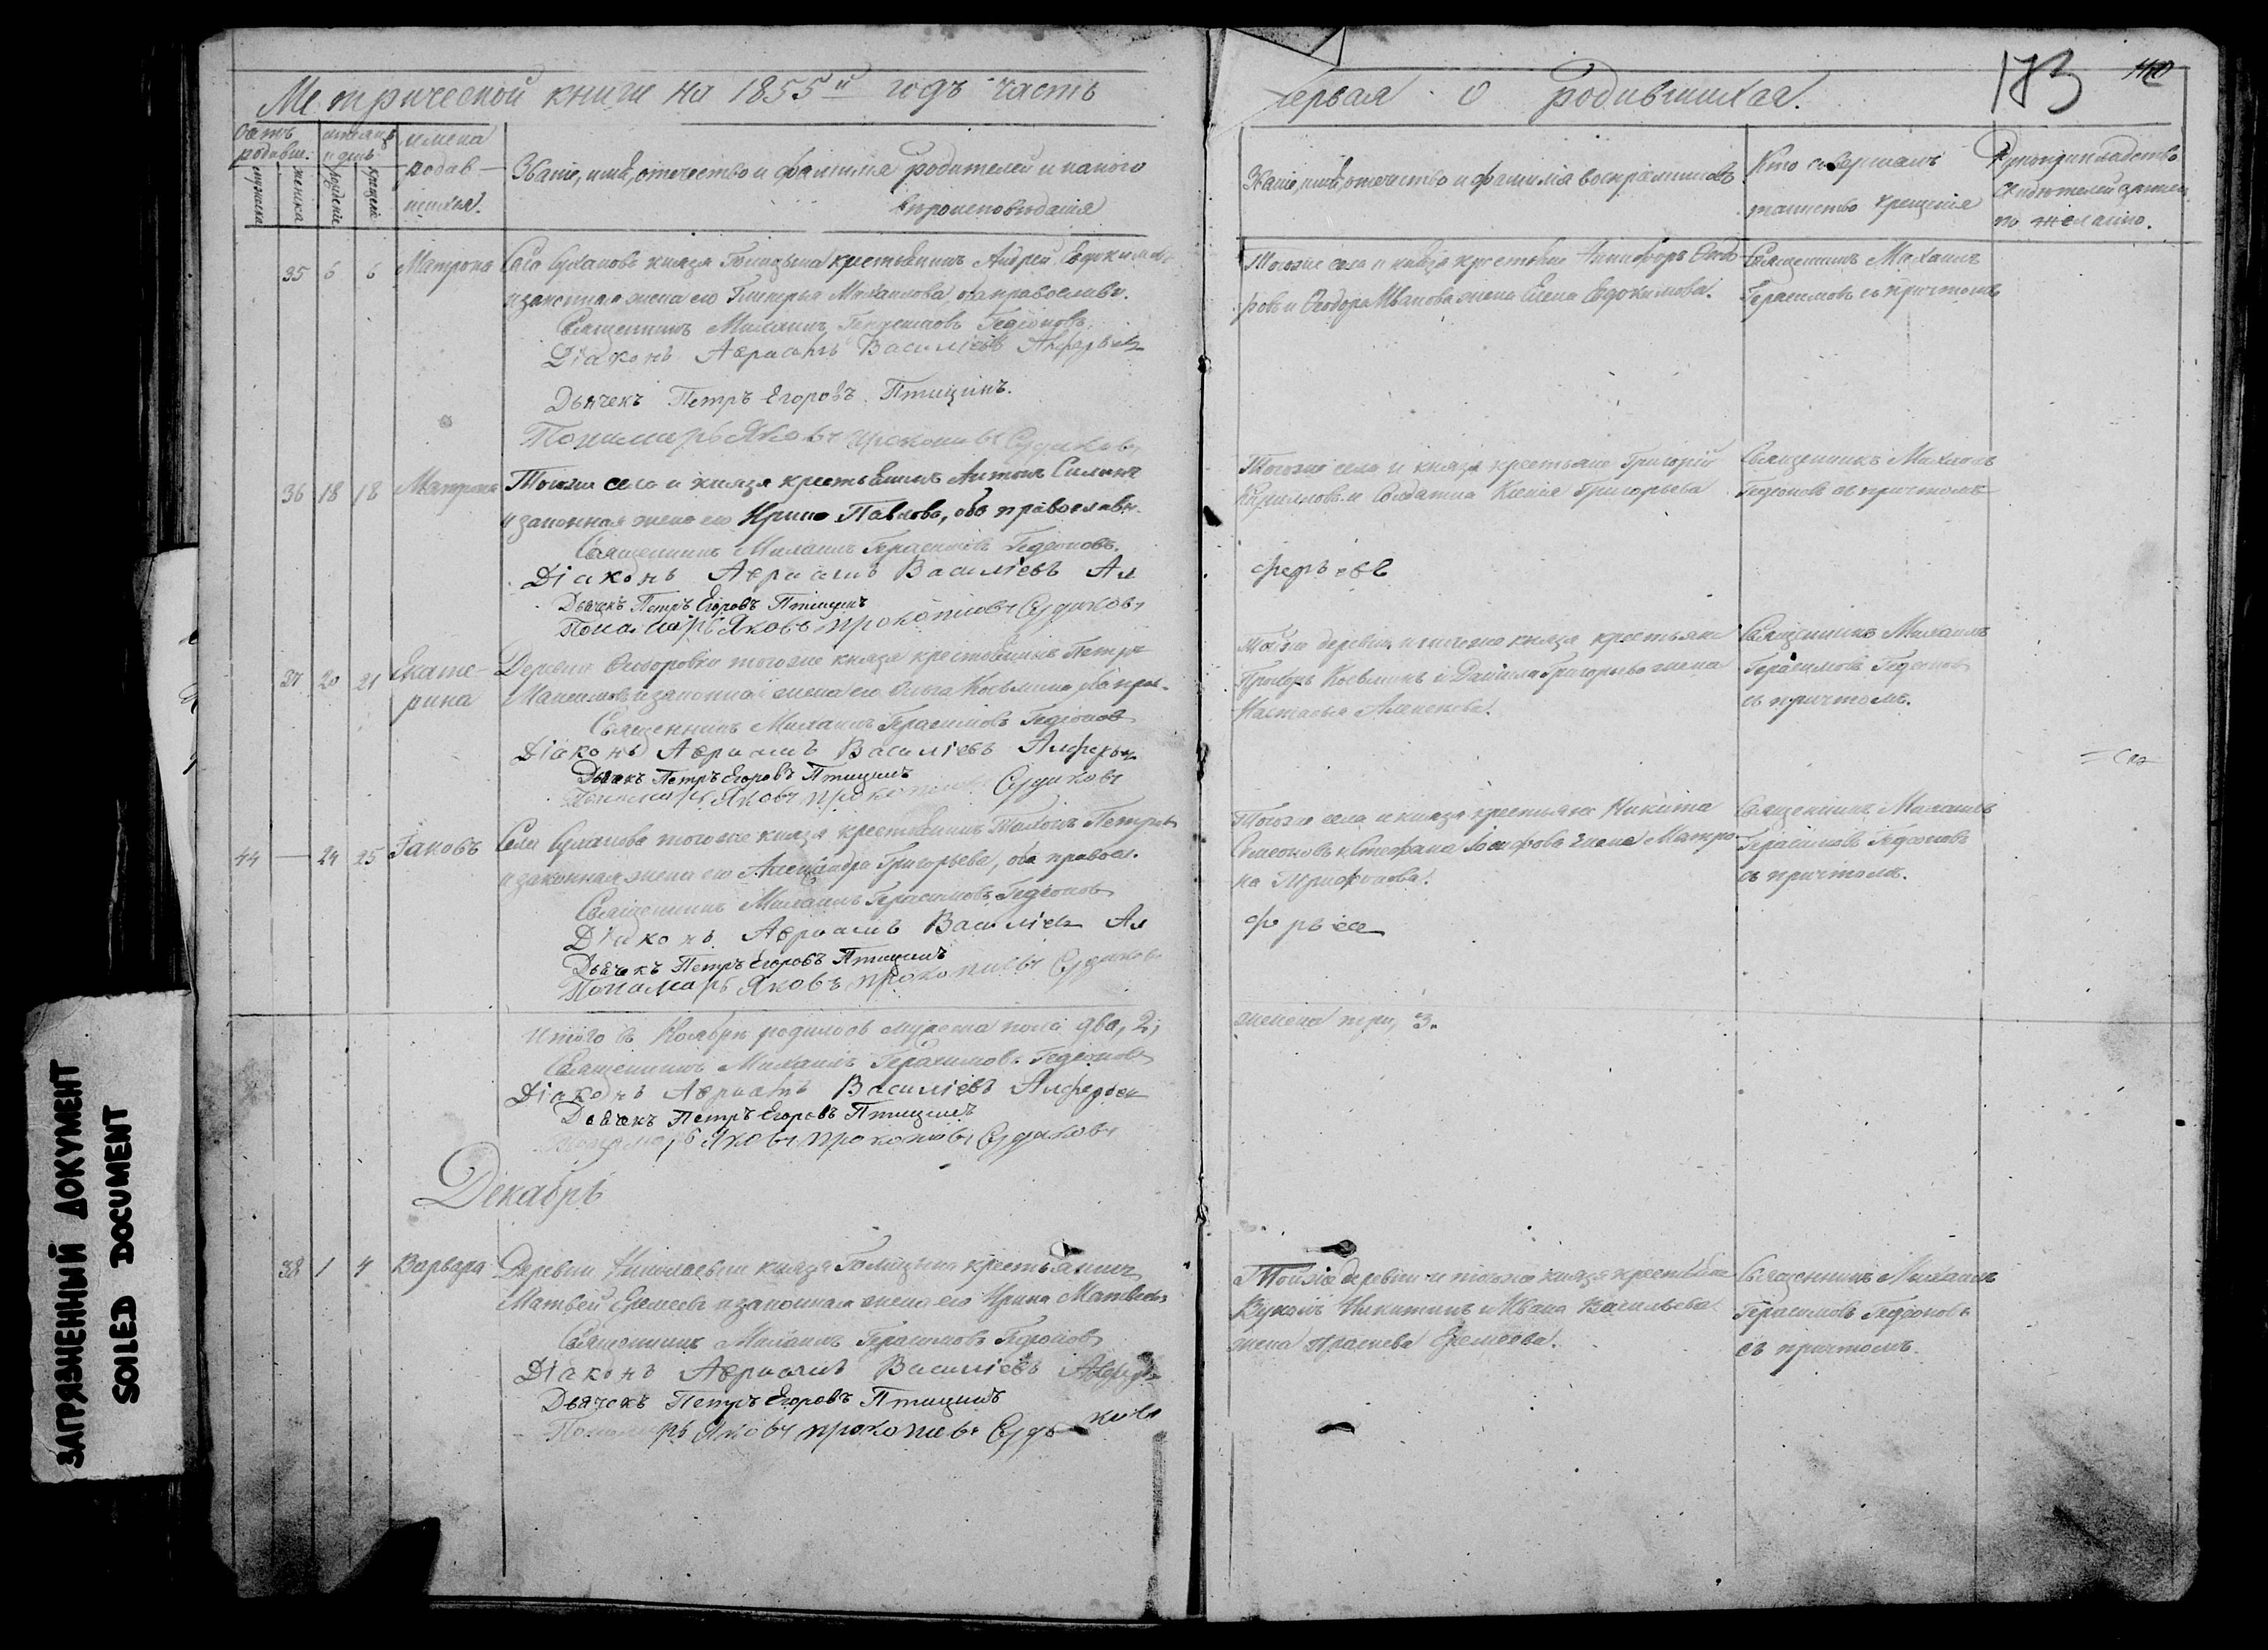 Метрической книги на 1855й годъ часть
первая о родившихся.
183
имена
родив-
шихся.
Званіе, имя, отчество и фамилія родителей и какого
вѣроисповѣданія
Званіе, имя, отчество и фамилія воспріемниковъ
Кто совершалъ
таинство крещенія
по желанію.
35 6 6 Матрона Села князя Голицына крестьянинъ Андрей Евдокимовъ
и законная жена его Михаилова, оба православн.
Священникъ Михаилъ Герасимовъ Гедеоновъ
Діаконъ Авраамъ Василіевъ Алферьевъ
Дьячекъ Петръ Егоровъ Птицынъ.
Пономарь Яковъ Прокопиевъ Судаковъ
Тогоже села и князя крестьяне
и Ѳеодора Иванова жена Елена Евдокимова.
Священникъ Михаилъ
Герасимовъ съ причтомъ
36 18 18 Матрона Тогоже села и князя крестьянинъ Антонъ
и законная жена его Ирина Павлова, оба православн.
Священникъ Михаилъ Герасимовъ Гедеоновъ.
Діаконъ Авраамъ Василіевъ Ал
Дьячекъ Петръ Егоровъ Птицынъ
Пономарь Яковъ Прокопиовъ Судаковъ
Тогоже села и князя крестьяне Григорій
и Солдатка Ксенія Григорьева
Священникъ Михаилъ
Гедеоновъ съ причтомъ
ферьевъ
37 20 21 Екате-
рина
Деревни Ѳедоровки тогоже князя крестьянинъ Петръ
и законная жена его Ольга Козьмина, оба прав.
Священникъ Михаилъ Герасимовъ Гедеоновъ
Діаконъ Авраамъ Василіевъ Алферьевъ
Дьячекъ Петръ Егоровъ Птицынъ
Пономарь Яковъ Прокопиовъ Судаковъ
Тойже деревни и тогоже князя крестьяне
Козьминъ и Данила Григорьева жена
Настасья Алексеева.
Священникъ Михаилъ
Герасимовъ Гедеоновъ
съ причтомъ.
44 — 24 25 Іаковъ Села тогоже князя крестьянинъ Петровъ
и законная жена его Александра Григорьева, оба правосл.
Священникъ Михаилъ Герасимовъ Гедеоновъ
Діаконъ Авраамъ Василіевъ Ал
Дьячекъ Петръ Егоровъ Птицынъ
Пономарь Яковъ Прокопиевъ Судаковъ
Тогоже села и князя крестьяне Никита
Симеоновъ и Стефана Іосифова жена Матро
на Трифонова.
Священникъ Михаилъ
Герасимовъ Гедеоновъ
съ причтомъ.
ферьевъ
Итого въ Ноябрѣ родилось мужеска пола два, 2,
женска три, 3.
Священникъ Михаилъ Герасимовъ Гедеоновъ
Діаконъ Авраамъ Василіевъ Алферьевъ
Дьячекъ Петръ Егоровъ Птицынъ
Пономарь Яковъ Прокопиовъ Судаковъ
Декабрь
38 1 4 Варвара Деревни Николаевки князя Голицына крестьянинъ
Матвей Еремеевъ и законная жена его Ирина Матвеева
Священникъ Михаилъ Герасимовъ Гедеоновъ
Діаконъ Авраамъ Василіевъ
Дьячекъ Петръ Егоровъ Птицынъ
Пономарь Яковъ Прокопиевъ Судаковъ
Тойже деревни и тогоже князя крестьяне
Вуколъ Никитинъ и Ивана Васильева
жена Еремеева.
Священникъ Михаилъ
Герасимовъ Гедеоновъ
съ причтомъ.
ЗАГРЯЗНЕННЫЙ ДОКУМЕНТ
SOILED DOCUMENT